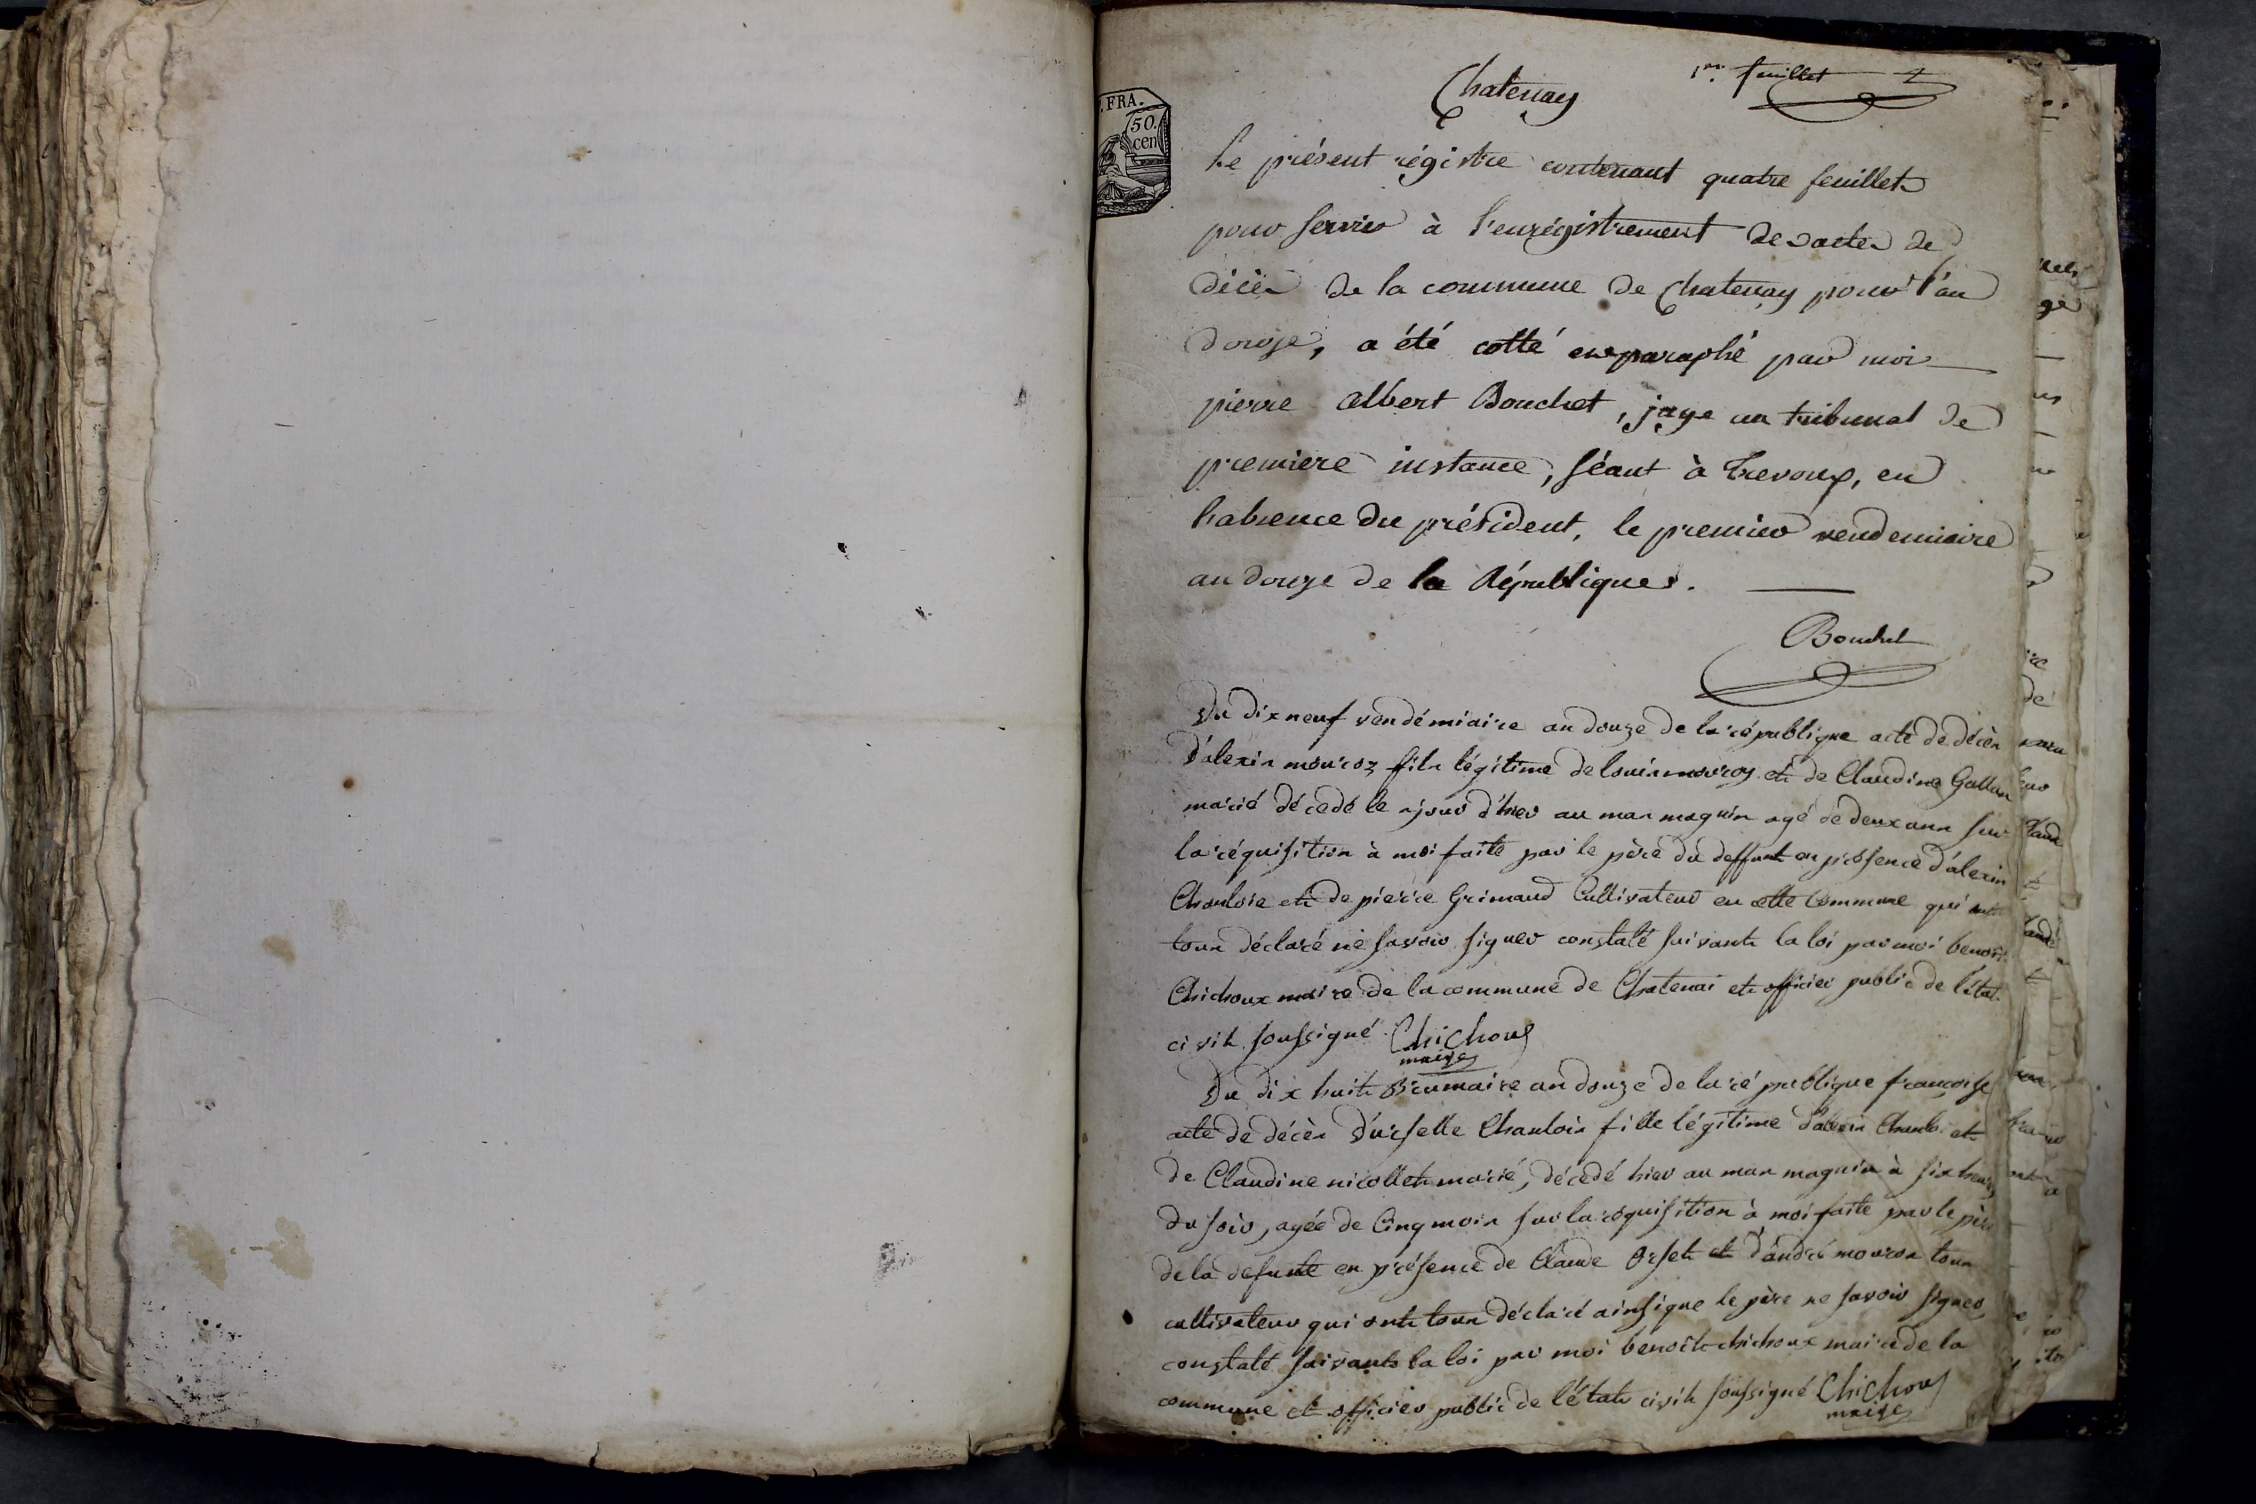 Chatenay
1er. feuillet
. FRA.
50.
cen
Le présent régistre contenant quatre feuillets
pour servir à l'enrégistrement des actes de
décès de la commune de Chatenay pour l'an
douze, a été cotté et paraphé par moi
pierre albert Bouchet, juge au tribunal de
premiere instance, séant à trevoux, en
l'absence du président, le premier vendemiaire
an douze de la République.
Bouchet
Du dix neuf vendémiaire an douze de la république acte de décès
d'alexis mouroz fils légitime de louis mouroz et de Claudine Gallan
marié décedé le jour d'hier au mas maguin agé de deux ans sur
la réquisition à moi faite par le père du deffunt en présence d'alexis
Chanlois et de pierre Grimaud Cultivateur en cette Commune qui ont
tous déclaré ne savoir signer constaté suivant la loi par moi benoit
Chichoux maire de la commune de Chatenai et officier public de l'état
civil soussigné Chichoux
maire
Du dix huit Brumaire an douze de la république françoise
acte de décès d'urselle Chanlois fille légitime d'alexis Chanlois et
de Claudine nicollet marié, décedé hier au mas maguin à six heures
du soir, agée de Cinq mois sur la réquisition à moi faite par le père
de la defunte en présence de Claude Orset et d'andré mouron tous
cultivateur qui ont tous déclaré ainsi que le père ne savoir signer
constaté suivant la loi par moi benoit chichoux maire de la
commune et officier public de l'état civil soussigné Chichoux
maire